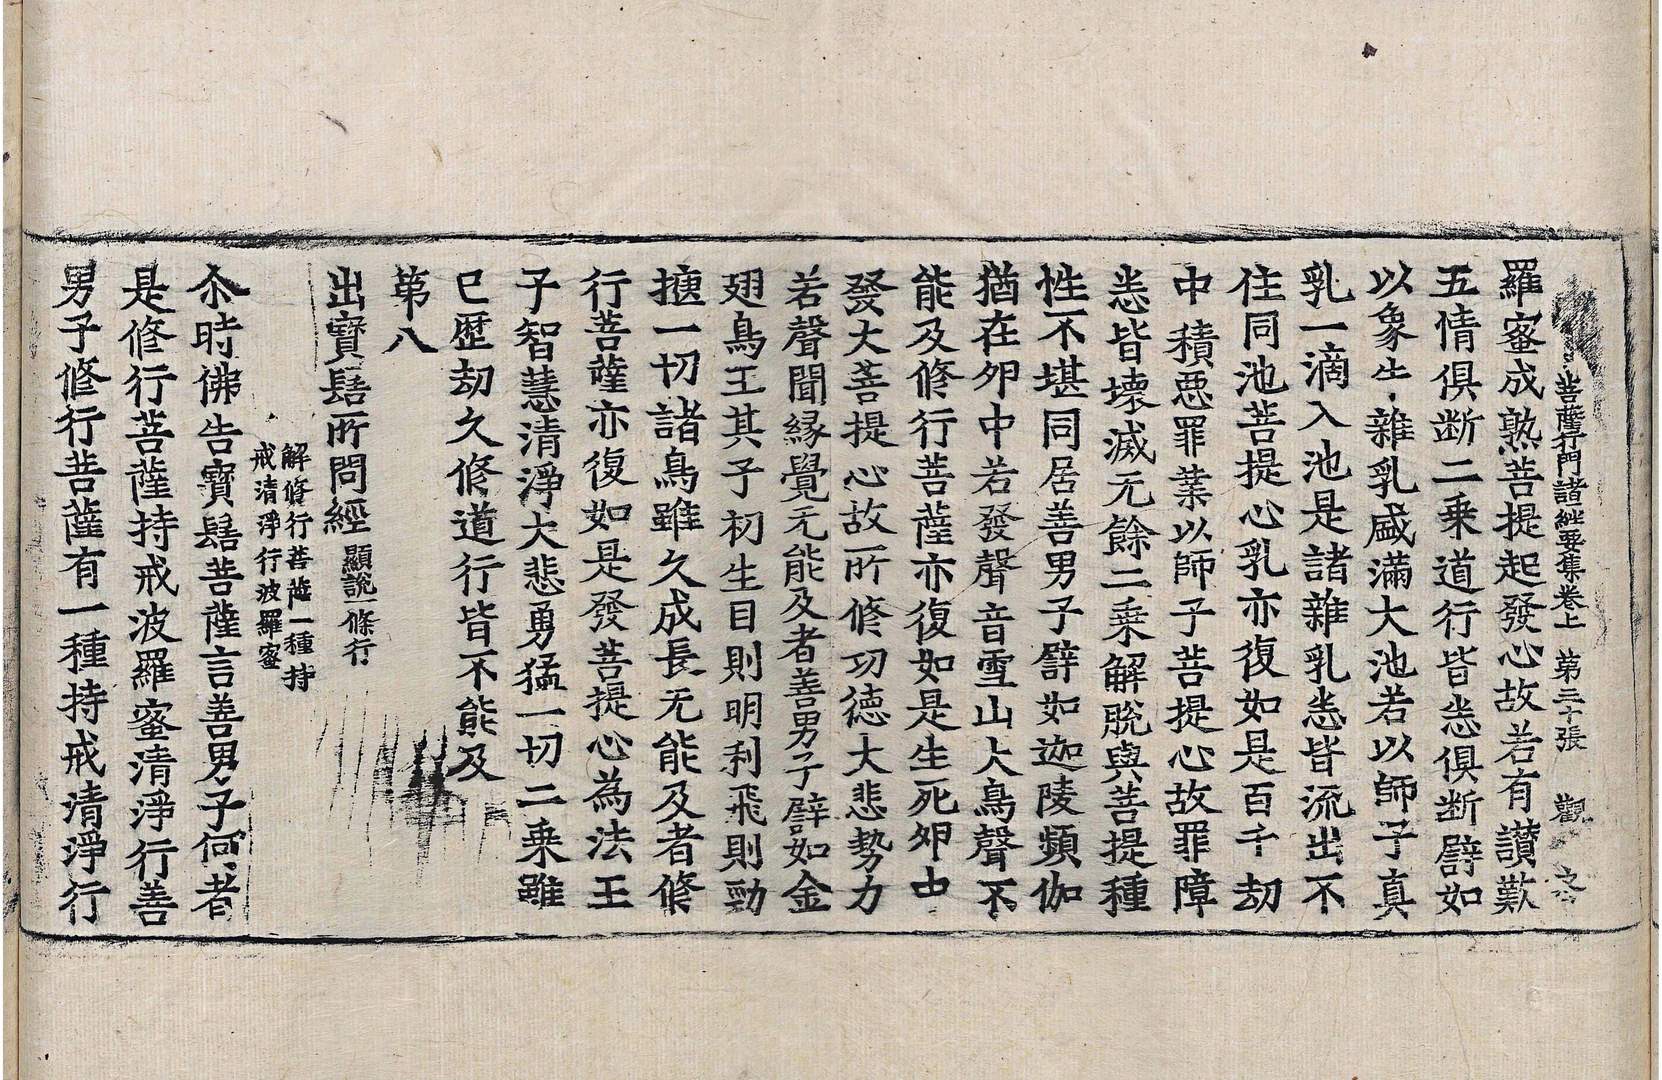 菩薩行門諸經要集卷上　第三十張　觀
羅蜜成熟菩提起發心故若有讃歎
五情俱断二乗道行皆悉俱断譬如
以象牛雜乳盛滿大池若以師子真
乳一滴入池是諸雜乳悉皆流出不
住同池菩提心乳亦復如是百千劫
中積惡罪業以師子菩提心故罪障
悉皆壞滅无餘二乗解脫與菩提種
性不堪同居善男子譬如迦陵頻伽
猶在夘中若發聲音雪山大鳥聲不
能及修行菩薩亦復如是生死夘中
發大菩提心故所修功德大悲勢力
若聲聞緣覺无能及者善男子譬如金
翅鳥王其子初生目則明利飛則勁
揵一切諸鳥雖久成長无能及者修
行菩薩亦復如是發菩提心為法王
子智慧清淨大悲勇猛一切二乗雖
已歷劫久修道行皆不能及
第八
出寶髻所問經顯說一條行
解修行菩薩一種持
戒清淨行波羅蜜
尒時佛告寶髻菩薩言善男子何者
是修行菩薩持戒波羅蜜清淨行善
男子修行菩薩有一種持戒清淨行